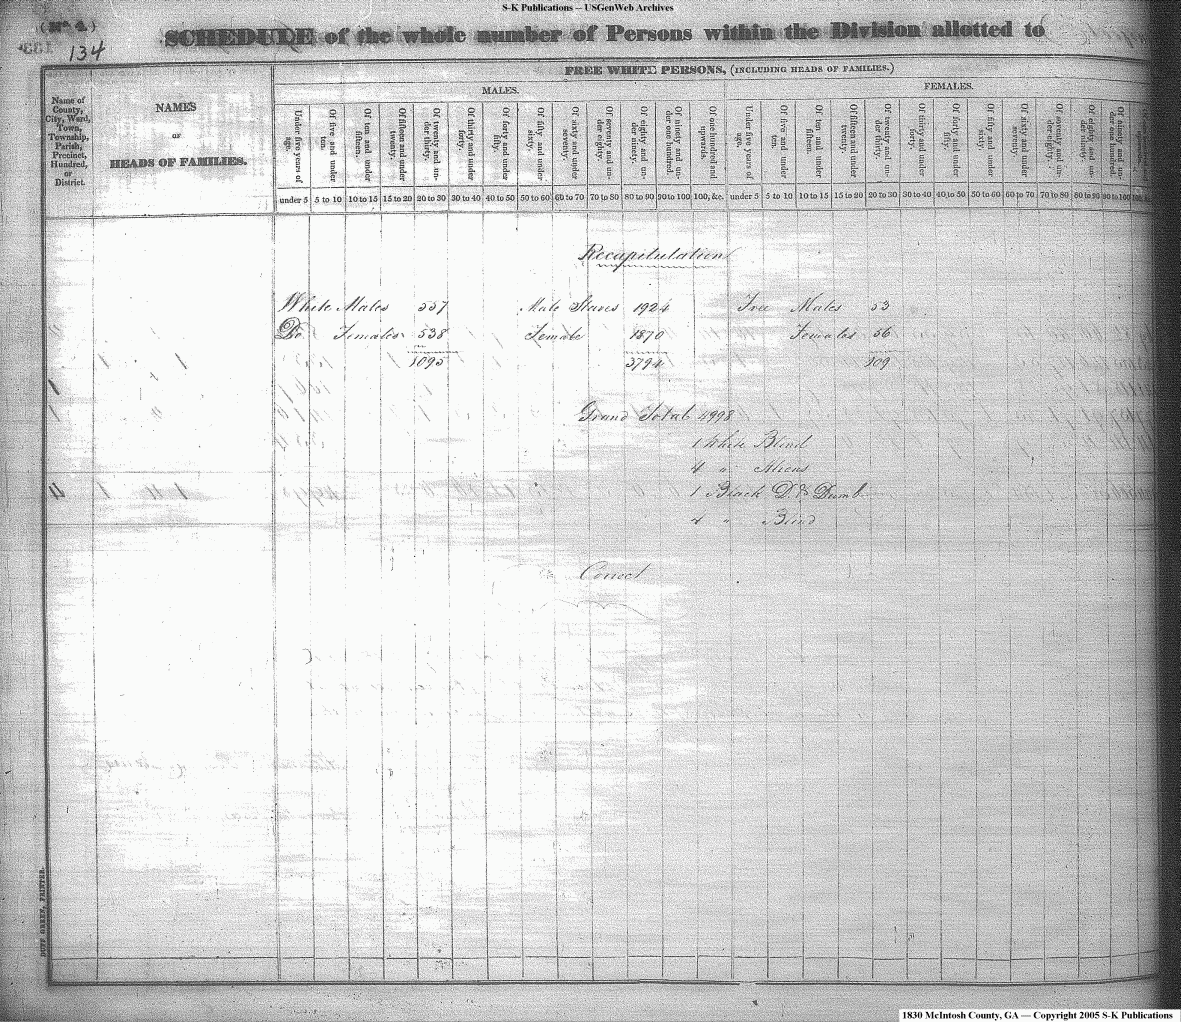 S-K Publications -- USGenWeb Archives
(No. 4.)
134
SCHEDULE of the whole number of Persons within the Division allotted to
FREE WHITE PERSONS, (INCLUDING HEADS OF FAMILIES.)
MALES.
FEMALES.
Name of County, City, Ward, Town, Township, Parish, Precinct, Hundred, or District.
NAMES
OF
HEADS OF FAMILIES.
Under five years of age.
Of five and under ten.
Of ten and under fifteen.
Of fifteen and under twenty.
Of twenty and under thirty.
Of thirty and under forty.
Of forty and under fifty.
Of fifty and under sixty.
Of sixty and under seventy.
Of seventy and under eighty.
Of eighty and under ninety.
Of ninety and under one hundred.
Of one hundred and upwards.
Under five years of age.
Of five and under ten.
Of ten and under fifteen.
Of fifteen and under twenty.
Of twenty and under thirty.
Of thirty and under forty.
Of forty and under fifty.
Of fifty and under sixty.
Of sixty and under seventy.
Of seventy and under eighty.
Of eighty and under ninety.
Of ninety and under one hundred.
under 5 5 to 10 10 to 15 15 to 20 20 to 30 30 to 40 40 to 50 50 to 60 60 to 70 70 to 80 80 to 90 90 to 100 100, &c. under 5 5 to 10 10 to 15 15 to 20 20 to 30 30 to 40 40 to 50 50 to 60 60 to 70 70 to 80 80 to 90 90 to 100
Recapitulation
White Males 557 Male Slaves 1924 Free Males 53
Do. Females 538 Female 1870 Females 56
1095 3794 109
Grand Total 4998
1 White Blind
4 " Aliens
1 Black D. & Dumb
4 " Blind
Correct
DUFF GREEN, PRINTER.
1830 McIntosh County, GA — Copyright 2005 S-K Publications